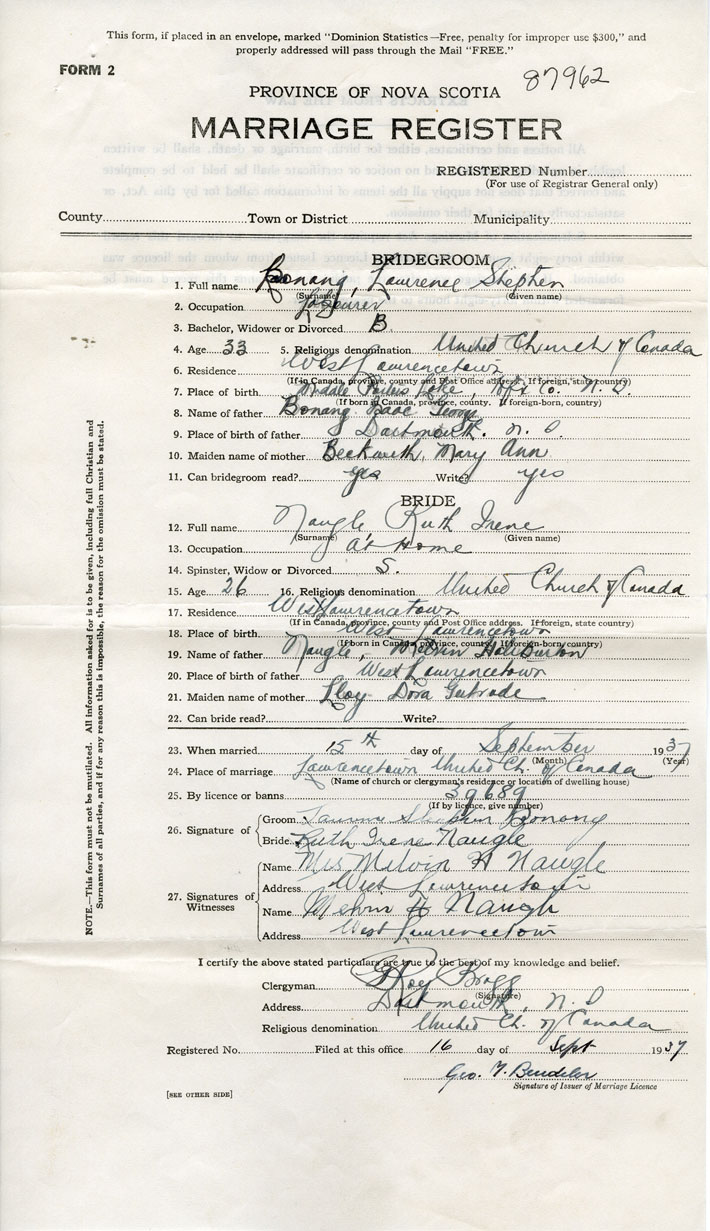 This form, if placed in an envelope, marked "Dominion Statistics—Free, penalty for improper use $300," and
properly addressed will pass through the Mail "FREE."
FORM 2
87962
PROVINCE OF NOVA SCOTIA
MARRIAGE REGISTER
REGISTERED Number
(For use of Registrar General only)
County Town or District Municipality
BRIDEGROOM
1. Full name Bonang, Lawrence Stephen
(Surname) (Given name)
2. Occupation Labourer
3. Bachelor, Widower or Divorced B
4. Age 33 5. Religious denomination United Church of Canada
6. Residence West Lawrencetown
(If in Canada, province, county and Post Office address. If foreign, state country)
7. Place of birth Middle Porters Lake, Hfx Co. N. S.
(If born in Canada, province, county. If foreign-born, country)
8. Name of father Bonang Isaac
9. Place of birth of father Dartmouth. N. S.
10. Maiden name of mother Beckwith, Mary Ann
11. Can bridegroom read? yes Write? yes
BRIDE
12. Full name Naugle Ruth Irene
(Surname) (Given name)
13. Occupation at Home
14. Spinster, Widow or Divorced S.
15. Age 26 16. Religious denomination United Church of Canada
17. Residence West Lawrencetown
(If in Canada, province, county and Post Office address. If foreign, state country)
18. Place of birth West Lawrencetown
(If born in Canada, province, county. If foreign-born, country)
19. Name of father Naugle, Melvin Haliburton
20. Place of birth of father West Lawrencetown
21. Maiden name of mother Lloy Dora Gertrude
22. Can bride read? Write?
23. When married 15th day of September 1937
(Month) (Year)
24. Place of marriage Lawrencetown United Ch. of Canada
(Name of church or clergyman's residence or location of dwelling house)
25. By licence or banns 39689
(If by licence, give number)
26. Signature of
Groom Stephen Bonang
Bride Ruth Irene Naugle
27. Signatures of Witnesses
Name Mrs Melvin H Naugle
Address West Lawrencetown
Name Melvin H Naugle
Address West Lawrencetown
I certify the above stated particulars are true to the best of my knowledge and belief.
Clergyman Roy Bragg
(Signature)
Address Dartmouth, N. S
Religious denomination United Ch. of Canada
Registered No. Filed at this office 16 day of Sept 1937
Geo.
Signature of Issuer of Marriage Licence
[SEE OTHER SIDE]
NOTE.—This form must not be mutilated. All information asked for is to be given, including full Christian and
Surnames of all parties, and if for any reason this is impossible, the reason for the omission must be stated.